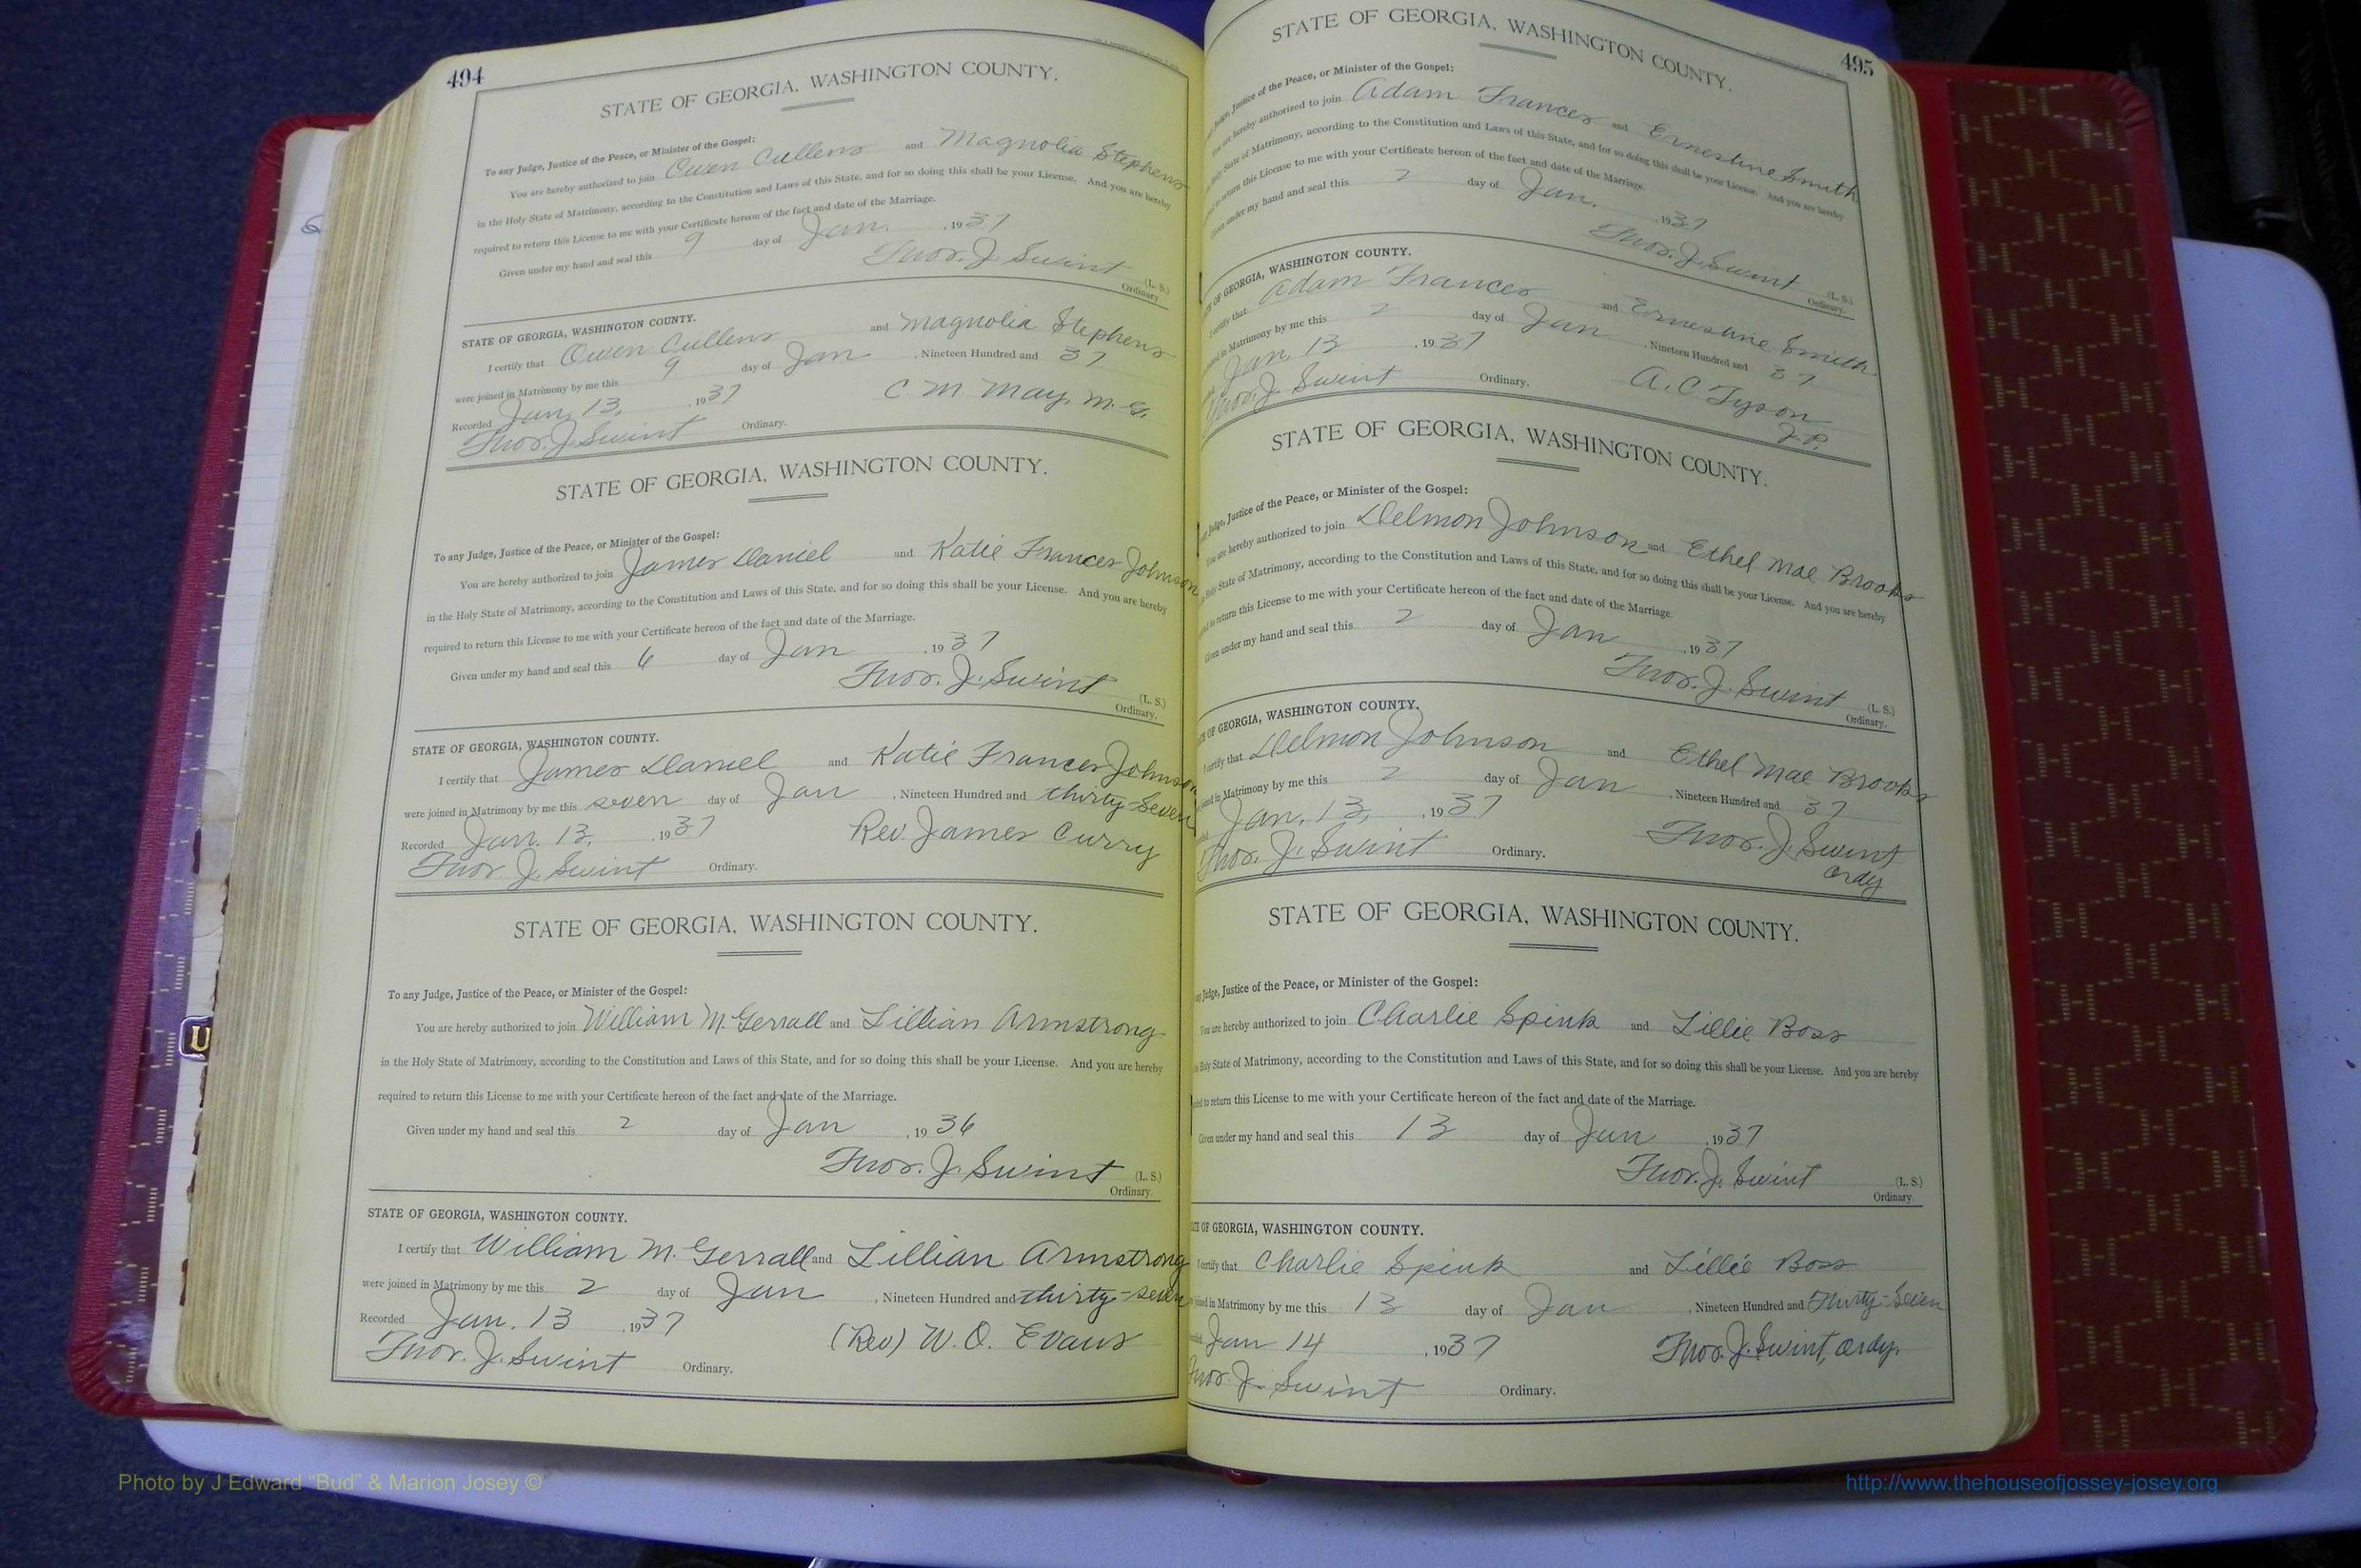 494
STATE OF GEORGIA, WASHINGTON COUNTY.
To any Judge, Justice of the Peace, or Minister of the Gospel:
You are hereby authorized to join Owen Cullens and Magnolia Stephens
in the Holy State of Matrimony, according to the Constitution and Laws of this State, and for so doing this shall be your License. And you are hereby
required to return this License to me with your Certificate hereon of the fact and date of the Marriage.
Given under my hand and seal this 9 day of Jan. , 1937
Thos. J. Swint (L. S.)
Ordinary.
STATE OF GEORGIA, WASHINGTON COUNTY.
I certify that Owen Cullens and Magnolia Stephens
were joined in Matrimony by me this 9 day of Jan , Nineteen Hundred and 37
Recorded Jan, 13, , 1937 C M May, M. G.
Thos. J. Swint Ordinary.
STATE OF GEORGIA, WASHINGTON COUNTY.
To any Judge, Justice of the Peace, or Minister of the Gospel:
You are hereby authorized to join James Daniel and Katie Frances Johnson
in the Holy State of Matrimony, according to the Constitution and Laws of this State, and for so doing this shall be your License. And you are hereby
required to return this License to me with your Certificate hereon of the fact and date of the Marriage.
Given under my hand and seal this 6 day of Jan , 1937
Thos. J. Swint (L. S.)
Ordinary.
STATE OF GEORGIA, WASHINGTON COUNTY.
I certify that James Daniel and Katie Frances Johnson
were joined in Matrimony by me this seven day of Jan , Nineteen Hundred and thirty-seven
Recorded Jan. 13, , 1937 Rev. James Curry
Thos J. Swint Ordinary.
STATE OF GEORGIA, WASHINGTON COUNTY.
To any Judge, Justice of the Peace, or Minister of the Gospel:
You are hereby authorized to join William M. Gerrall and Lillian Armstrong
in the Holy State of Matrimony, according to the Constitution and Laws of this State, and for so doing this shall be your License. And you are hereby
required to return this License to me with your Certificate hereon of the fact and date of the Marriage.
Given under my hand and seal this 2 day of Jan , 1936
Thos. J. Swint (L. S.)
Ordinary.
STATE OF GEORGIA, WASHINGTON COUNTY.
I certify that William M. Gerrall and Lillian Armstrong
were joined in Matrimony by me this 2 day of Jan , Nineteen Hundred and thirty-seven
Recorded Jan. 13 , 1937 (Rev) W. O. Evans
Thos. J. Swint Ordinary.
495
STATE OF GEORGIA, WASHINGTON COUNTY.
Judge, Justice of the Peace, or Minister of the Gospel:
You are hereby authorized to join Adam Frances and Ernestine Smith
Holy State of Matrimony, according to the Constitution and Laws of this State, and for so doing this shall be your License. And you are hereby
to return this License to me with your Certificate hereon of the fact and date of the Marriage.
Given under my hand and seal this 2 day of Jan. , 1937
Thos. J. Swint (L. S.)
Ordinary.
OF GEORGIA, WASHINGTON COUNTY.
I certify that Adam Frances and Ernestine Smith
in Matrimony by me this 2 day of Jan , Nineteen Hundred and 37
Jan, 13 , 1937 A. C. Tyson
Thos. J. Swint Ordinary. J. P.
STATE OF GEORGIA, WASHINGTON COUNTY.
Judge, Justice of the Peace, or Minister of the Gospel:
You are hereby authorized to join Delmon Johnson and Ethel Mae Brooks
Holy State of Matrimony, according to the Constitution and Laws of this State, and for so doing this shall be your License. And you are hereby
to return this License to me with your Certificate hereon of the fact and date of the Marriage.
Given under my hand and seal this 2 day of Jan , 1937
Thos. J. Swint (L. S.)
Ordinary.
OF GEORGIA, WASHINGTON COUNTY.
I certify that Delmon Johnson and Ethel Mae Brooks
in Matrimony by me this 2 day of Jan , Nineteen Hundred and 37
Jan, 13, , 1937 Thos. J. Swint
Thos. J. Swint Ordinary. Ordy
STATE OF GEORGIA, WASHINGTON COUNTY.
any Judge, Justice of the Peace, or Minister of the Gospel:
You are hereby authorized to join Charlie Spink and Lillie Boss
Holy State of Matrimony, according to the Constitution and Laws of this State, and for so doing this shall be your License. And you are hereby
to return this License to me with your Certificate hereon of the fact and date of the Marriage.
Given under my hand and seal this 13 day of Jan , 1937
Thos. J. Swint (L. S.)
Ordinary.
OF GEORGIA, WASHINGTON COUNTY.
I certify that Charlie Spink and Lillie Boss
in Matrimony by me this 13 day of Jan , Nineteen Hundred and Thirty-Seven
Jan 14 , 1937 Thos. J. Swint, Ordy.
Thos. J. Swint Ordinary.
U
Photo by J Edward “Bud” & Marion Josey ©
http://www.thehouseofjossey-josey.org